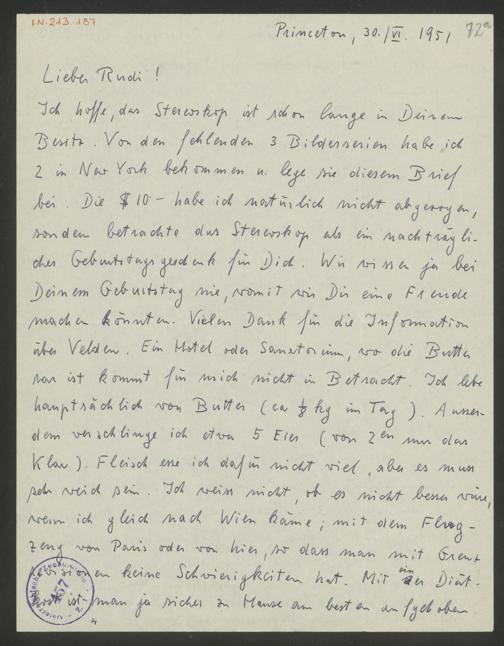 I.N. 213.187
Princeton, 30./VI. 1951 72a
Lieber Rudi!
Ich hoffe, das Stereoskop ist schon lange in Deinem
Besitz. Von den fehlenden 3 Bilderserien habe ich
2 in New York bekommen u. lege sie diesem Brief
bei. Die $ 10.– habe ich natürlich nicht abgezogen,
sondern betrachte das Stereoskop als ein nachträgli-
ches Geburtstagsgeschenk für Dich. Wir wissen ja bei
Deinem Geburtstag nie, womit wir Dir eine Freude
machen könnten. Vielen Dank für die Information
über Velden. Ein Hotel oder Sanatorium, wo die Butter
rar ist kommt für mich nicht in Betracht. Ich lebe
hauptsächlich von Butter (ca kg im Tag). Ausser-
dem verschlinge ich etwa 5 Eier (von 2en nur das
Klar). Fleisch esse ich dafür nicht viel, aber es muss
sehr weich sein. Ich weiss nicht, ob es nicht besser wäre,
wenn ich gleich nach Wien käme; mit dem Flug-
zeug von Paris oder von hier, so dass man mit Grenz
en keine Schwierigkeiten hat. Mit einer Diät-
ist man ja sicher zu Hause am besten aufgehoben.
157